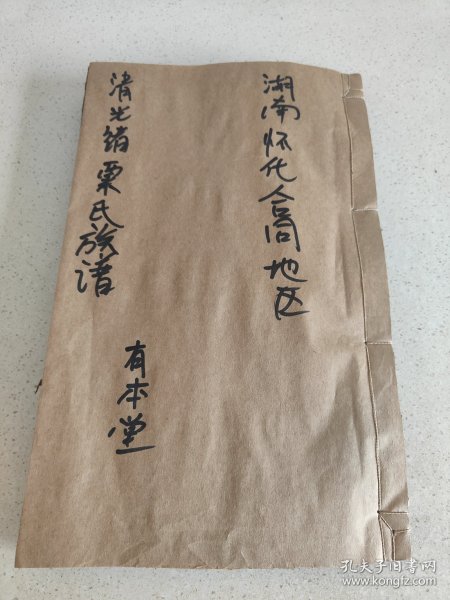 湖南怀化会同地区
清光绪粟氏族谱
有本堂
孔夫子旧书网
www.kongfz.com